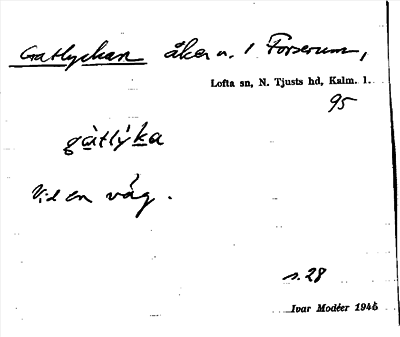 Gatlyckan åker n. 1 Forserum,
Lofta sn, N. Tjusts hd, Kalm. l.
95
gàtlỳka
Vid en väg.
s. 28
Ivar Modéer 1946